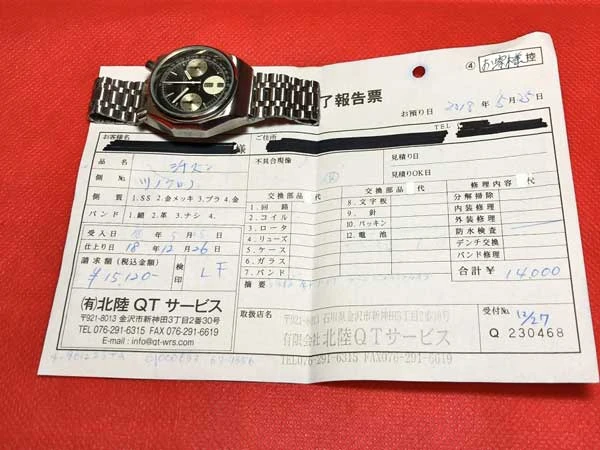 ④ お客様 控
了報告票
お預り日 2018 年 5月 25日
お客様名 様 ご住所 TEL
品名 シチズン
側No. ツノクロノ
側質 1.SS 2.金メッキ 3.プラ 4.金
バンド 1.鎖 2.革 3.ナシ 4.
受入日 18 年 5月 25日
仕上り日 18年 12月 26日
請求額(税込金額) 検印
¥15,120- LF
(有)北陸QTサービス
〒921-8013 金沢市新神田3丁目2番30号
TEL 076-291-6315 FAX 076-291-6619
E-mail : info@qt-wrs.com
不具合現像
見積り日
見積りOK日
交換部品 代
1.回路
2.コイル
3.ロータ
4.リューズ
5.ケース
6.ガラス
7.バンド
交換部品 代
8.文字板
9.針
10.パッキン
12.電池
修理内容 代
分解掃除
内装修理
外装修理
防水検査
デンチ交換
バンド修理
合計¥ 14,000
摘要
取扱店名
〒921-8013 石川県金沢市新神田3丁目2番30号
有限会社 北陸QTサービス
TEL076-291-6315 FAX076-291-6619
受付No. 12/27
Q 230468